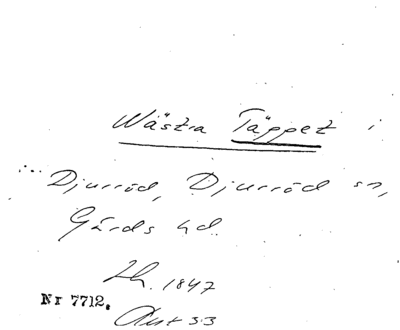 Wästra Täppet i
Djurröd, Djurröd sn,
Gärds hd.
Lh. 1847
Nr 7712.
Akt 33